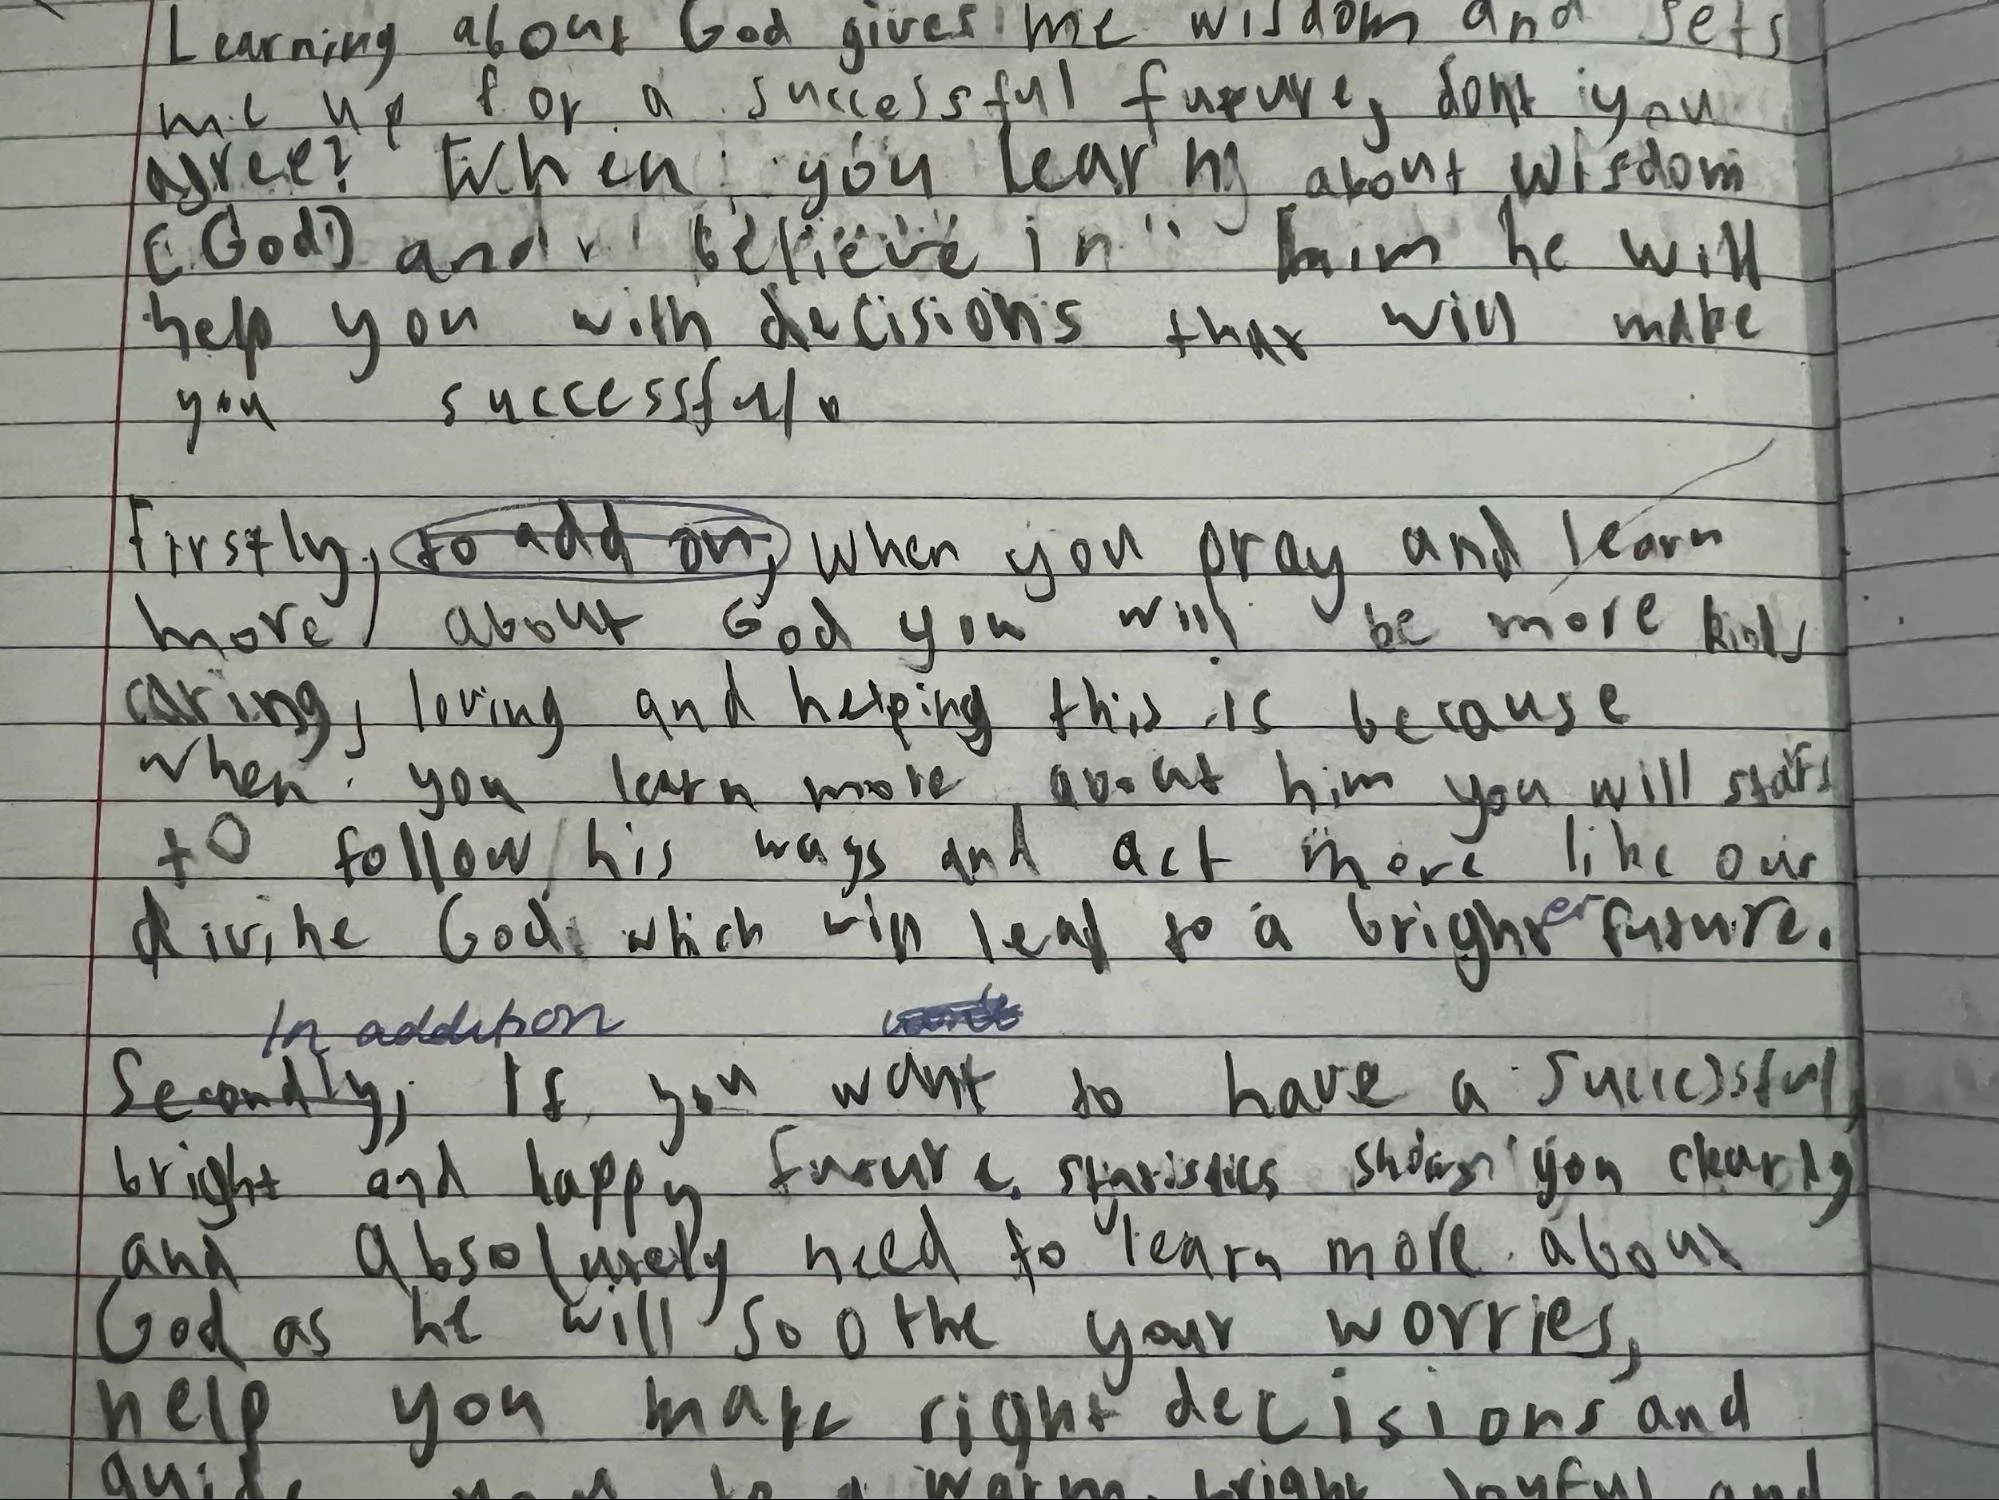 Learning about God gives me wisdom and sets
me up for a successful future, dont you
agree? When you learn about wisdom
(God) and believe in him he will
help you with decisions that will make
you successful.
Firstly, to add on, when you pray and learn
more about God you will be more kind,
caring, loving and helping this is because
when you learn more about him you will start
to follow his ways and act more like our
divine God which will lead to a brighter future.
In addition
Secondly, If you want to have a successful
bright and happy future. statistics shows you clearly
and absolutely need to learn more about
God as he will soothe your worries,
help you make right decisions and
guide you to a warm, bright joyful and